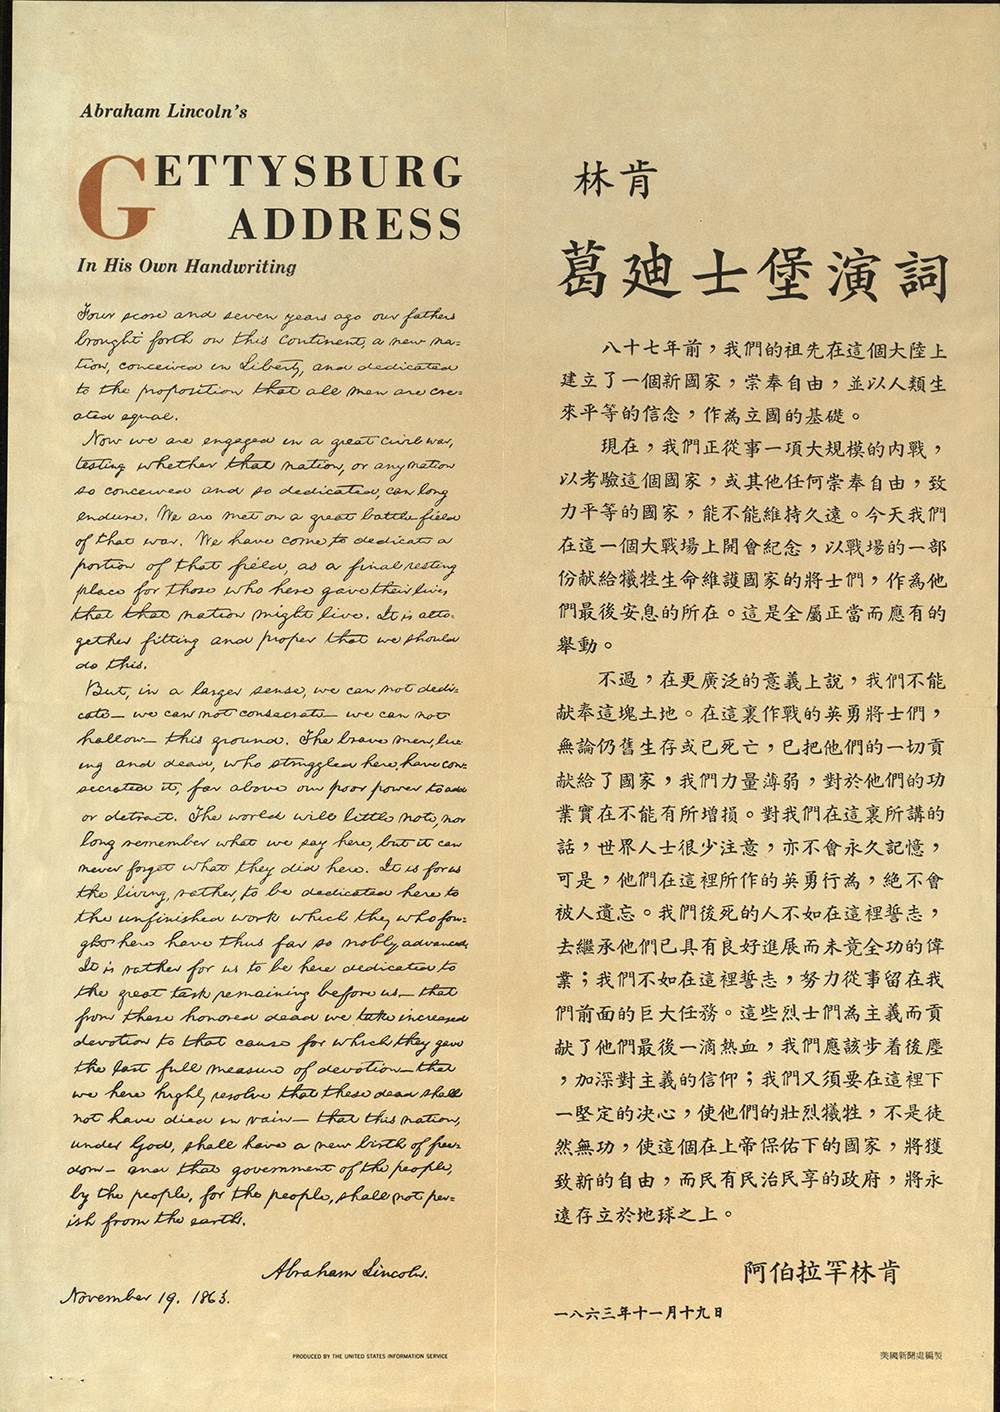 Abraham Lincoln's
GETTYSBURG
ADDRESS
In His Own Handwriting
Four score and seven years ago our fathers
brought forth on this continent, a new na-
tion, conceived in Liberty, and dedicated
to the proposition that all men are cre-
ated equal.
Now we are engaged in a great civil war,
testing whether that nation, or any nation
so conceived and so dedicated, can long
endure. We are met on a great battle-field
of that war. We have come to dedicate a
portion of that field, as a final resting
place for those who here gave their lives
that that nation might live. It is alto-
gether fitting and proper that we should
do this.
But, in a larger sense, we can not dedi-
cate— we can not consecrate— we can not
hallow— this ground. The brave men, liv-
ing and dead, who struggled here, have con-
secrated it, far above our poor power to add
or detract. The world will little note, nor
long remember what we say here, but it can
never forget what they did here. It is for us
the living, rather, to be dedicated here to
the unfinished work which they who fou-
ght here have thus far so nobly advanced.
It is rather for us to be here dedicated to
the great task remaining before us— that
from these honored dead we take increased
devotion to that cause for which they gave
the last full measure of devotion— that
we here highly resolve that these dead shall
not have died in vain— that this nation,
under God, shall have a new birth of free-
dom— and that government of the people,
by the people, for the people, shall not per-
ish from the earth.
Abraham Lincoln.
November 19. 1863.
PRODUCED BY THE UNITED STATES INFORMATION SERVICE
林肯
葛廸士堡演詞
八十七年前，我們的祖先在這個大陸上
建立了一個新國家，崇奉自由，並以人類生
來平等的信念，作為立國的基礎。
現在，我們正從事一項大規模的內戰，
以考驗這個國家，或其他任何崇奉自由，致
力平等的國家，能不能維持久遠。今天我們
在這一個大戰場上開會紀念，以戰場的一部
份献給犧牲生命維護國家的將士們，作為他
們最後安息的所在。這是全屬正當而應有的
舉動。
不過，在更廣泛的意義上說，我們不能
献奉這塊土地。在這裏作戰的英勇將士們，
無論仍舊生存或已死亡，已把他們的一切貢
献給了國家，我們力量薄弱，對於他們的功
業實在不能有所增損。對我們在這裏所講的
話，世界人士很少注意，亦不會永久記憶，
可是，他們在這裡所作的英勇行為，絕不會
被人遺忘。我們後死的人不如在這裡誓志，
去繼承他們已具有良好進展而未竟全功的偉
業；我們不如在這裡誓志，努力從事留在我
們前面的巨大任務。這些烈士們為主義而貢
献了他們最後一滴熱血，我們應該步着後塵
，加深對主義的信仰；我們又須要在這裡下
一堅定的決心，使他們的壯烈犧牲，不是徒
然無功，使這個在上帝保佑下的國家，將獲
致新的自由，而民有民治民享的政府，將永
遠存立於地球之上。
阿伯拉罕林肯
一八六三年十一月十九日
美國新聞處編製